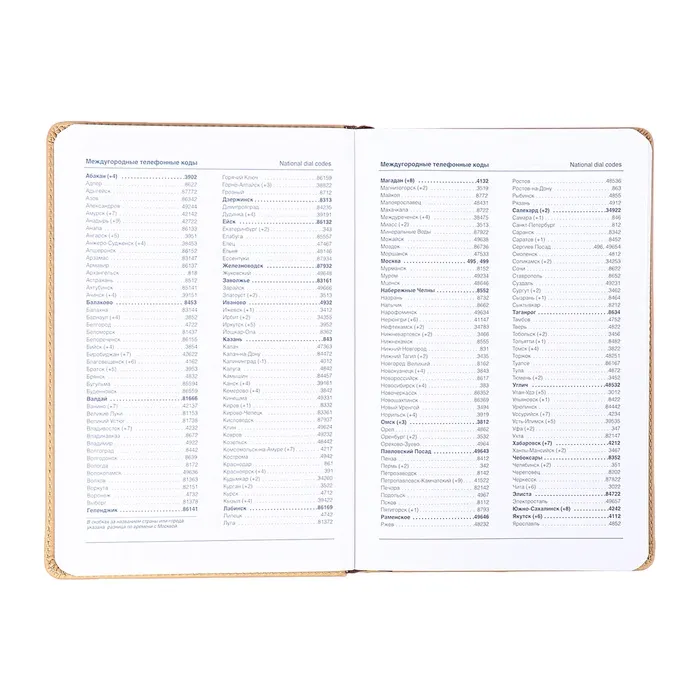 Междугородные телефонные коды National dial codes
Абакан (+4) 3902
Адлер 8622
Адыгейск 87772
Азов 86342
Александров 49244
Амурск (+7) 42142
Анадырь (+9) 42722
Анапа 86133
Ангарск (+5) 3951
Анжеро-Судженск (+4) 38453
Апшеронск 86152
Арзамас 83147
Армавир 86137
Архангельск 818
Астрахань 8512
Ахтубинск 85141
Ачинск (+4) 39151
Балаково 8453
Балахна 83144
Барнаул (+4) 3852
Белгород 4722
Белокуриха 81437
Белореченск 86155
Бийск (+4) 3854
Биробиджан (+7) 42622
Благовещенск (+6) 4162
Братск (+5) 3953
Брянск 4832
Бугульма 85594
Буденновск 86559
Валдай 81666
Ванино (+7) 42137
Великие Луки 81153
Великий Устюг 81738
Владивосток (+7) 4232
Владикавказ 8672
Владимир 4922
Волгоград 8442
Волгодонск 8639
Вологда 8172
Волоколамск 49636
Волхов 81363
Воркута 82151
Воронеж 4732
Выборг 81378
Геленджик 86141
В скобках за названием страны или города
указана разница по времени с Москвой.
Горячий Ключ 86159
Горно-Алтайск (+3) 38822
Грозный 8712
Дзержинск 8313
Димитровград 84235
Дудинка (+4) 39191
Ейск 86132
Екатеринбург (+2) 343
Елабуга 85557
Елец 47467
Ершов 84564
Ессентуки 87934
Железноводск 87932
Жуковский 49648
Заволжье 83161
Зарайск 49666
Златоуст (+2) 3513
Иваново 4932
Ижевск (+1) 3412
Ирбит (+2) 34355
Иркутск (+5) 3952
Йошкар-Ола 8362
Казань 843
Калач 47363
Калач-на-Дону 84472
Калининград (-1) 4012
Калуга 4842
Камышин 84457
Канск (+4) 39161
Кемерово (+4) 3842
Кинешма 49331
Киров (+1) 8332
Кирово-Чепецк 83361
Кисловодск 87937
Клин 49624
Ковров 49232
Козельск 48442
Комсомольск-на-Амуре (+7) 4217
Кострома 4942
Краснодар 861
Красноярск (+4) 391
Кудымкар (+2) 34260
Курган (+2) 3522
Курск 4712
Кызыл (+4) 39422
Лабинск 86169
Липецк 4742
Луга 81372
Междугородные телефонные коды National dial codes
Магадан (+8) 4132
Магнитогорск (+2) 3519
Майкоп 8772
Малоярославец 48431
Махачкала 8722
Междуреченск (+4) 38475
Миасс (+2) 3513
Минеральные Воды 87922
Можайск 49638
Моздок 86736
Моршанск 47533
Москва 495, 499
Мурманск 8152
Муром 49234
Мценск 48646
Набережные Челны 8552
Назрань 8732
Нальчик 8662
Нарофоминск 49634
Нерюнгри (+6) 41147
Нефтекамск (+2) 34783
Нижневартовск (+2) 3466
Нижнекамск 8555
Нижний Новгород 831
Нижний Тагил (+2) 3435
Великий Новгород 8162
Новокузнецк (+4) 3843
Новороссийск 8617
Новосибирск (+4) 383
Новочеркасск 86352
Новошахтинск 86369
Новый Уренгой 3494
Норильск (+4) 3919
Омск (+3) 3812
Орел 4862
Оренбург (+2) 3532
Орехово-Зуево 4964
Павловский Посад 49643
Пенза 8412
Пермь (+2) 342
Петрозаводск 8142
Петропавловск-Камчатский (+9) 41522
Печора 82142
Подольск 4967
Псков 8112
Пятигорск 8793
Раменское 49646
Ржев 48232
Ростов 48536
Ростов-на-Дону 863
Рыбинск 4855
Рязань 4912
Салехард (+2) 34922
Самара (+1) 846
Санкт-Петербург 812
Саранск 8342
Саратов (+1) 8452
Сергиев Посад 496, 49654
Смоленск 4812
Соликамск (+2) 34253
Сочи 8622
Ставрополь 8652
Суздаль 49231
Сургут (+2) 3462
Сызрань (+1) 8464
Сыктывкар 8212
Таганрог 8634
Тамбов 4752
Тверь 4822
Тобольск (+2) 3456
Тольятти (+1) 8482
Томск (+4) 3822
Торжок 48251
Туапсе 86167
Тула 4872
Тюмень (+2) 3452
Углич 48532
Улан-Удэ (+5) 3012
Ульяновск (+1) 8422
Урюпинск 84442
Уссурийск (+7) 42341
Усть-Илимск (+5) 39535
Уфа (+2) 347
Ухта 82147
Хабаровск (+7) 4212
Ханты-Мансийск (+2) 3467
Чебоксары 8352
Челябинск (+2) 351
Череповец 8202
Черкесск 87822
Чита (+6) 3022
Элиста 84722
Электросталь 49657
Южно-Сахалинск (+8) 4242
Якутск (+6) 4112
Ярославль 4852